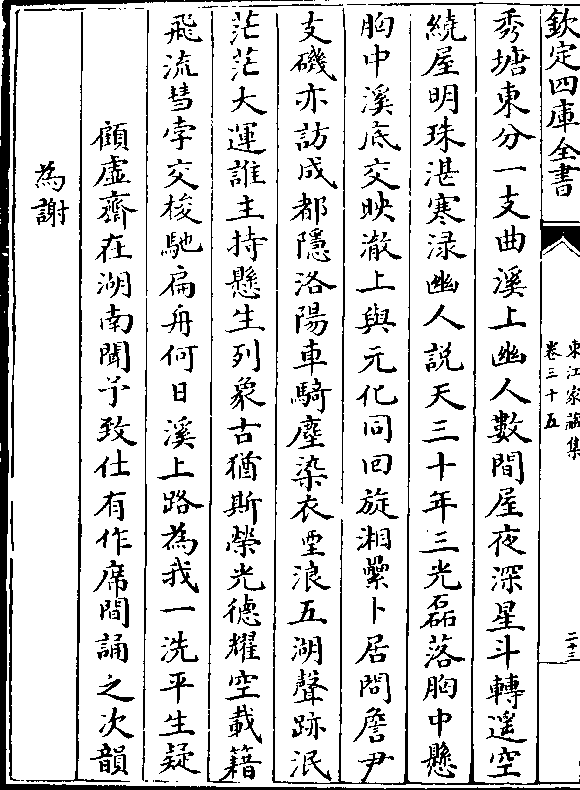 欽定四庫全書
東江家藏集
卷三十五
二十三
秀塘東分一支曲溪上幽人數間屋夜深星斗轉遥空
繞屋明珠湛寒渌幽人説天三十年三光磊落胸中懸
胸中溪底交映澈上與元化同回旋湘纍卜居問詹尹
支磯亦訪成都隱洛陽車騎塵染衣浪五湖聲跡泯
茫茫大運誰主持懸生列象古猶斯榮光德耀空載籍
飛流彗孛交梭馳扁舟何日溪上路為我一洗平生疑
顧虚齋在湖南聞予致仕有作席間誦之次韻
為謝